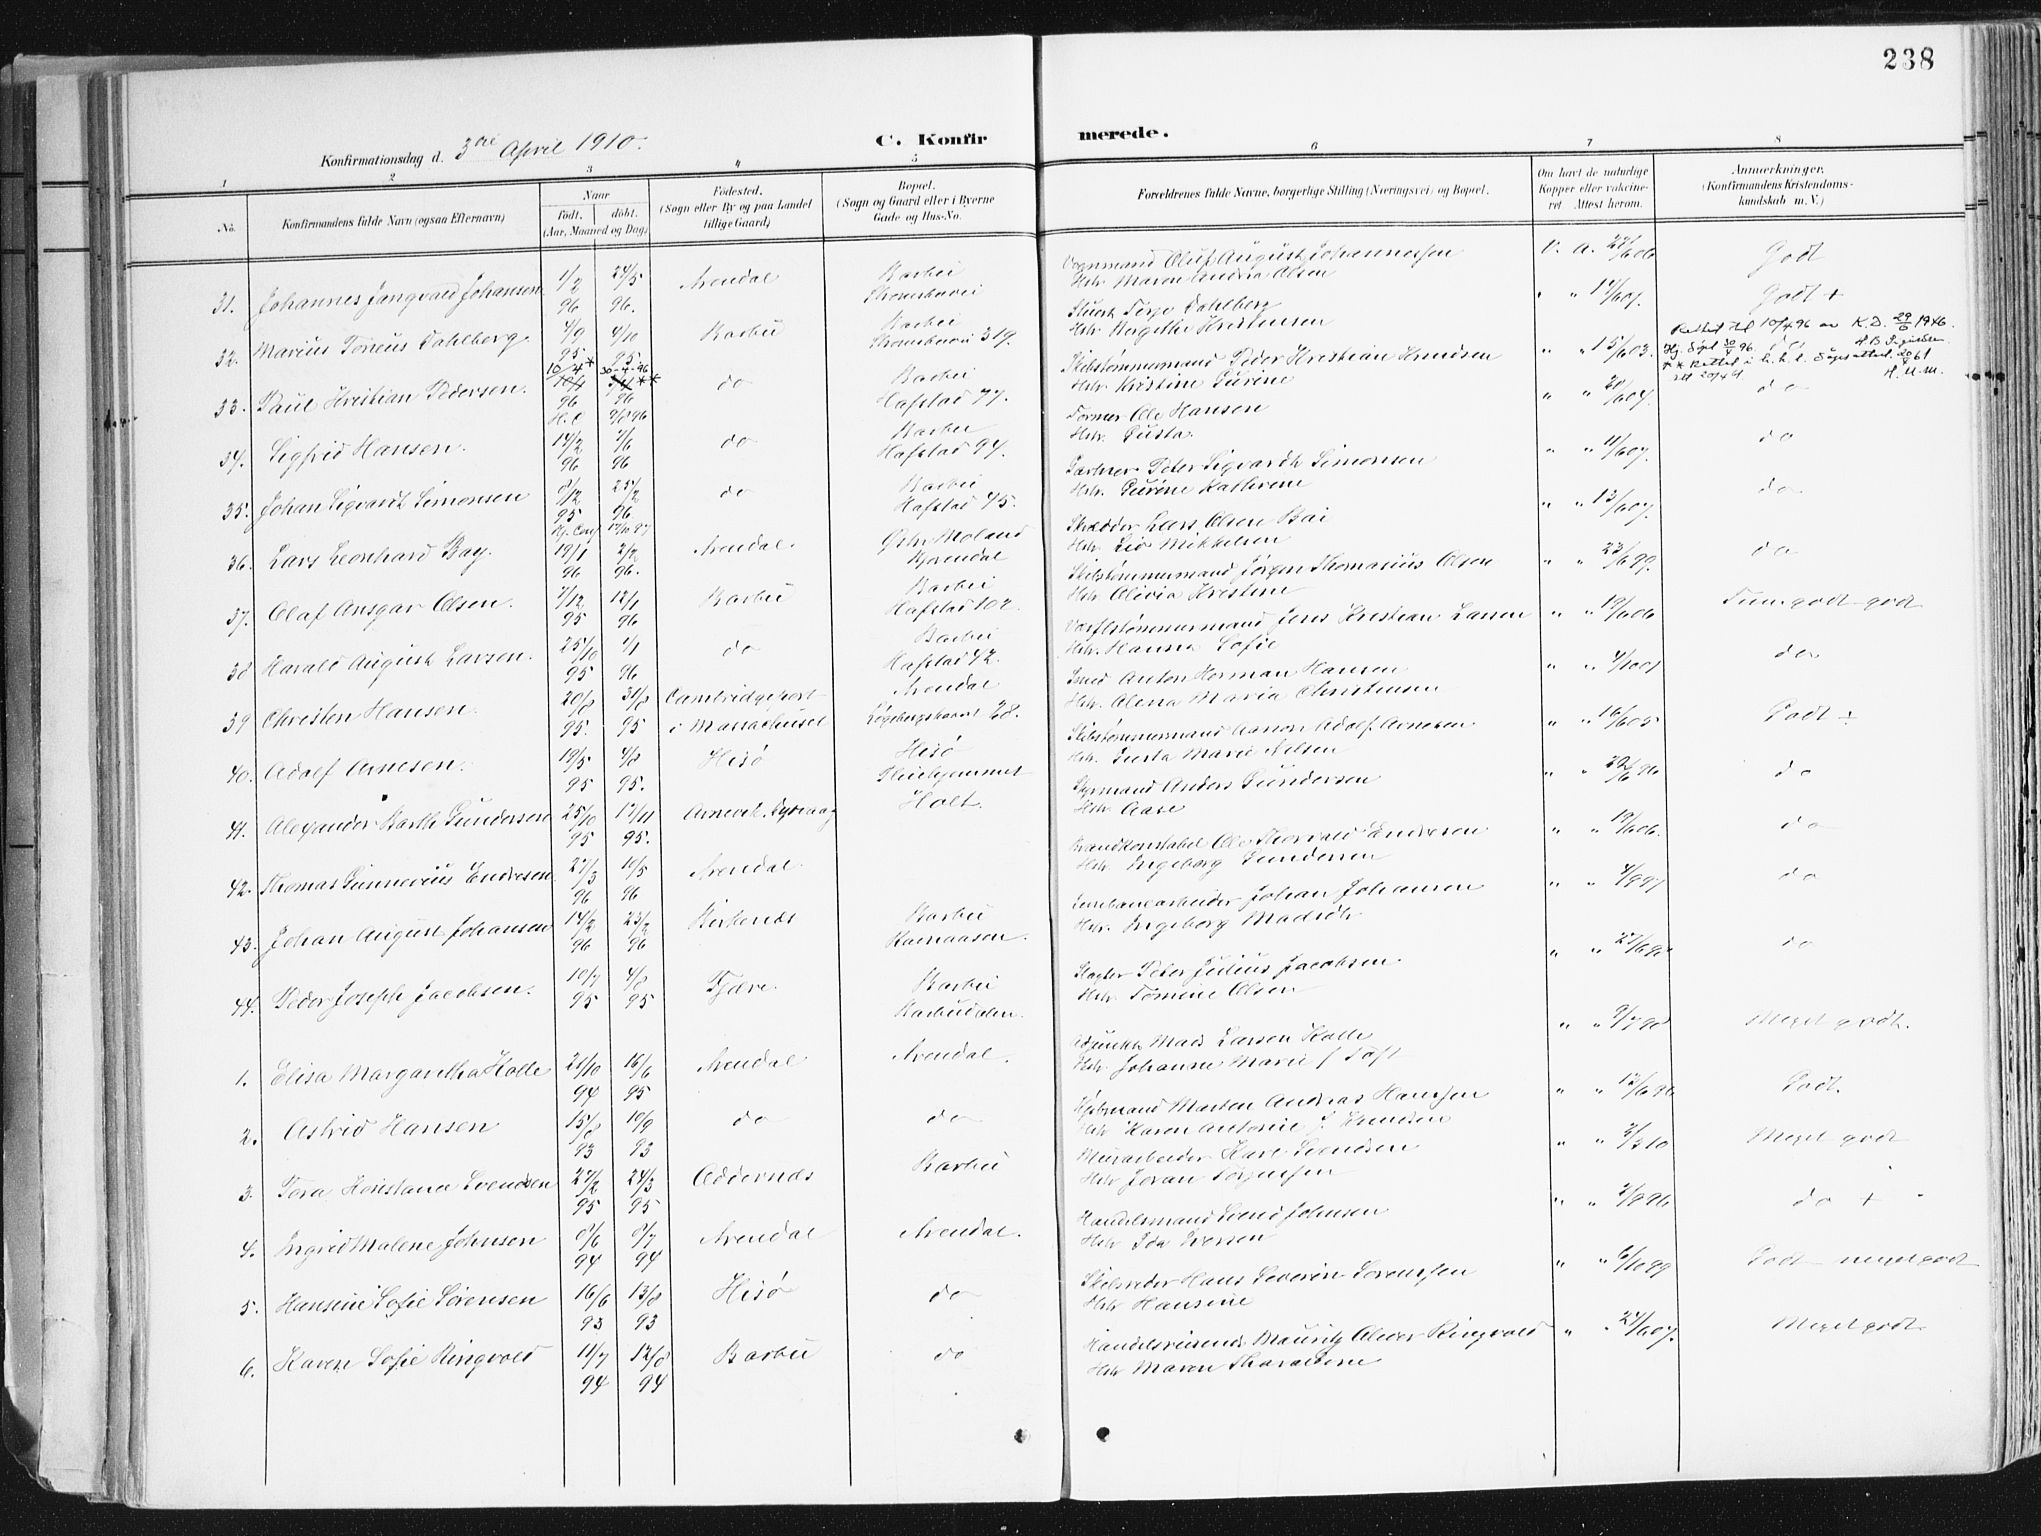 238
Konfirmationsdag d. 3die April 1910.
C. Konfirmerede.
1 2 3 4 5 6 7 8
No.
Konfirmandens fulde Navn (ogsaa Efternavn)
Naar
født, døbt.
(Aar, Maaned og Dag)
Fødested.
(Sogn eller By og paa Landet
tillige Gaard)
Bopæl.
(Sogn og Gaard eller i Byerne
Gade og Hus-No.
Forældrenes fulde Navne, borgerlige Stilling (Næringsvei) og Bopæl.
Om havt de naturlige
Kopper eller vakcine-
ret Attest herom.
Anmærkninger.
(Konfirmandens Kristendoms-
kundskab m. V.)
31. Johannes Jangvald Johansen 1/2 96 24/5 96. Arendal Barbu Strømsbuvei Vognmand Oluf August Johannessen Hstr Maren Andrea Olsen v. a. Godt
32. Marius Toneus Dahlberg 4/9 95 4/10 95. Barbu Barbu Strømsbuvei 319. Stuert Terje Dahlberg Hstr Margithe Kristensen " " Godt +
33. Paul Kristian Pedersen. 10/4* 96 30-4-96** do Barbu Hafstad 77. Skibstømmermand Peder Kristian Knudsen Hstr Kristine Gurine " " 15/6 03. Rettet til 10/4 96 av K.D. 29/6 1946.
34. Sigfrid Hansen. 14/2 96 7/6 96 do Barbu Hafstad 94. Former Ole Hansen Hstr. Gusta. " " do
35. Johan Sigvardt Simonsen 8/12 95 25/2 96 do Barbu Hafstad 45. Gartner Peter Sigvardt Simonsen Hstr. Gurine Kathrine " " 11/6 07. do
36. Lars Leonhard Bay. 19/1 96 2/2 96. Arendal. Østr Moland Bjorendal Skrædder Lars Olsen Bai Hstr. Lis Mikkelsen " " 13/6 07. do
37. Olaf Ansgar Olsen. 7/12 95 12/1 96 Barbu Barbu Hafstad 102. Skibstømmermand Jørgen Thomasius Olsen Hstr Olivia Kristine " " 23/6 99. do
38 Harald August Larsen. 25/10 95 1/1 96 do Barbu Hafstad 42. Værftstømmermand Jens Kristian Larsen Hstr. Hanna Sofie " " 19/6 06 Temgodt-godt
39 Christen Hansen. 20/8 95. 31/8 95 Cambridgeport i Massachuset Arendal Løgebergskaaret 28. Smed Anton Herman Hansen Hstr. Alena Maria Christensen " " do
40. Adolf Arnesen. 19/5 95 4/8 95. Hisø Hisø Pleiehjemmet Skibstømmermand Aanon Adolf Arnesen Hstr. Gusta Marie Nilsen " " 16/6 05 Godt ÷
41. Alexander Barth Gundersen 25/10 95 17/11 95. Arnevik, Dypvaag Holt. Styrmand Anders Gundersen Hstr Aase " " do
42. Thomas Gunnerius Endresen 27/3 96 10/5 96 Arendal Brandkonstabel Ole Thorvald Endresen Hstr. Ingeborg Gundersen " " 19/6 06. do
43. Johan August Johansen 14/2 96 23/2 96 Birkenes Barbu Kamaasen. Jernbanearbeider Johan Johansen Hstr. Ingeborg Madsdtr " " do
44. Peder Joseph Jacobsen. 10/7 95 4/8 95 Fjære. Barbu Barbudalen. Slagter Peter Julius Jacobsen. Hstr Tomine Olsen " " do
1. Elisa Margarethe Holte 21/10 94 16/6 95 Arendal Arendal. Adjunkt Mads Larsen Holte Hstr. Johanne Marie f Toft " " 9/7 98 Meget godt.
2. Astrid Hansen 15/8 93 10/9 93 do do Kjøbmand Morten Andreas Hanssen Hstr Karen Antonie f. Knudsen " " Godt.
3. Tora Kristana Svendsen 27/2 95 24/3 95 Oddernes Barbu Murarbeider Karl Svendsen Hstr Joran Torjussen " " 3/3 10 Meget godt
4. Ingrid Malene Johnsen 8/6 94 8/7 94 Arendal Arendal. Handelsmand Svend Johnsen Hstr Ida Iversen " " do +
5. Hansine Sofie Sørensen 16/6 93 13/8 93 Hisø do Skibsreder Hans Severin Sørenssen Hstr Hansine " " 6/10 99 Godt - meget godt
6. Karen Sofie Ringvold 11/7 94 12/8 94 Barbu do Handelsreisende Mauritz Oliver Ringvold Hstr Maren Tharaldine " " 24/6 07. Meget godt